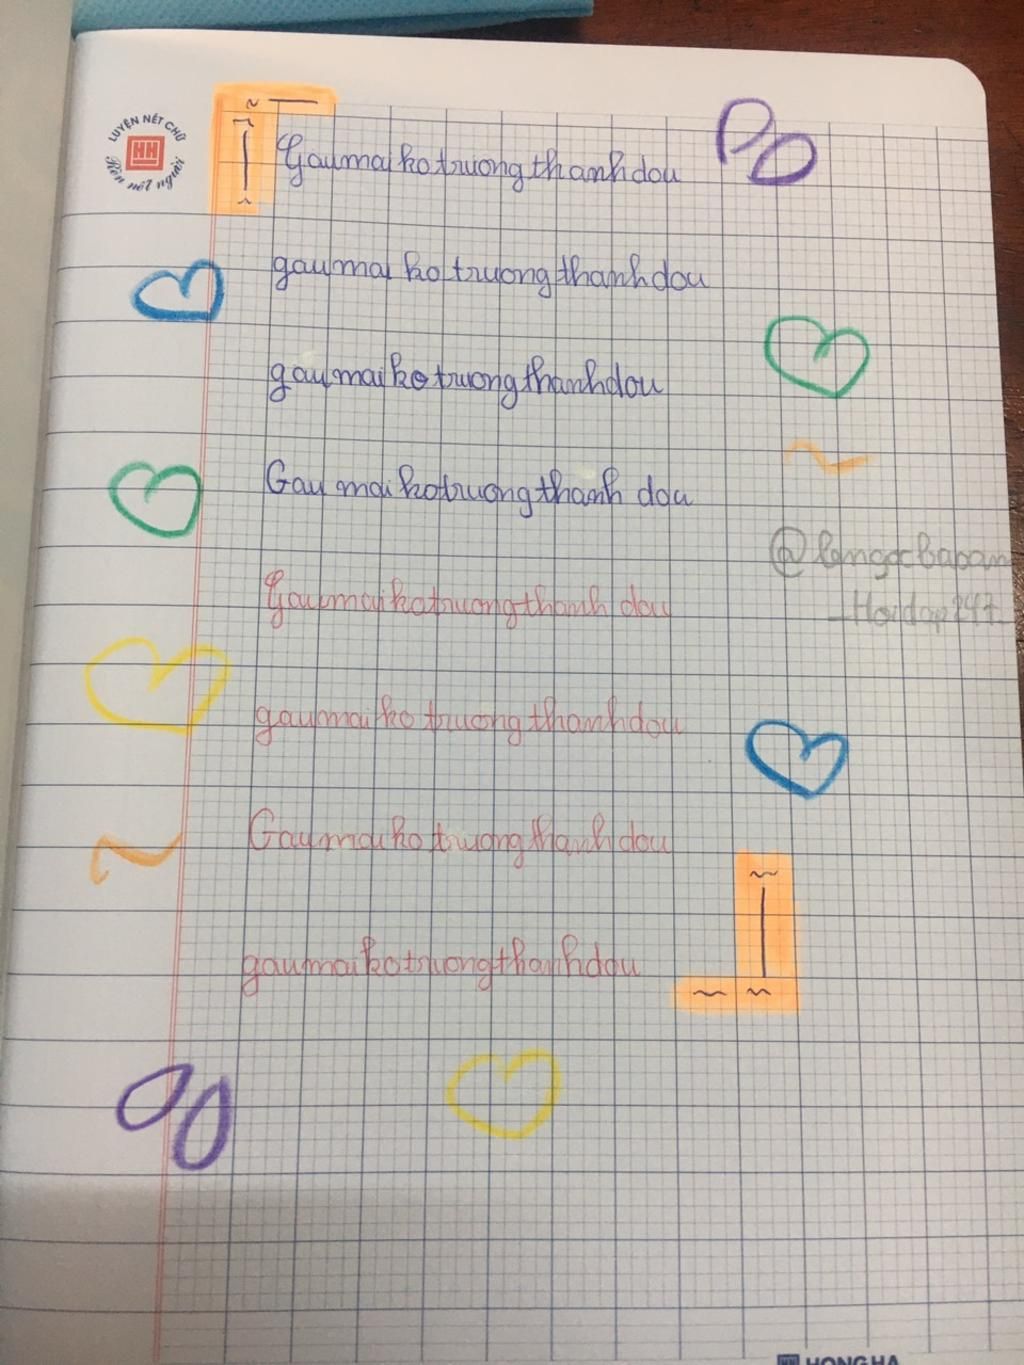 LUYỆN NÉT CHỮ
HH
Rèn nết người
Gaumaikotruongthanhdou
gaumai kotruongthanhdou
gaumaikotruongthanhdou
Gaumaikotruongthanh dou
Gaumaikotruongthanh dou
gaumaiko truongthanhdou
Gaumaiko truongthanhdou
gaumaikotruongthanhdou
Hoidap247
HONG HA